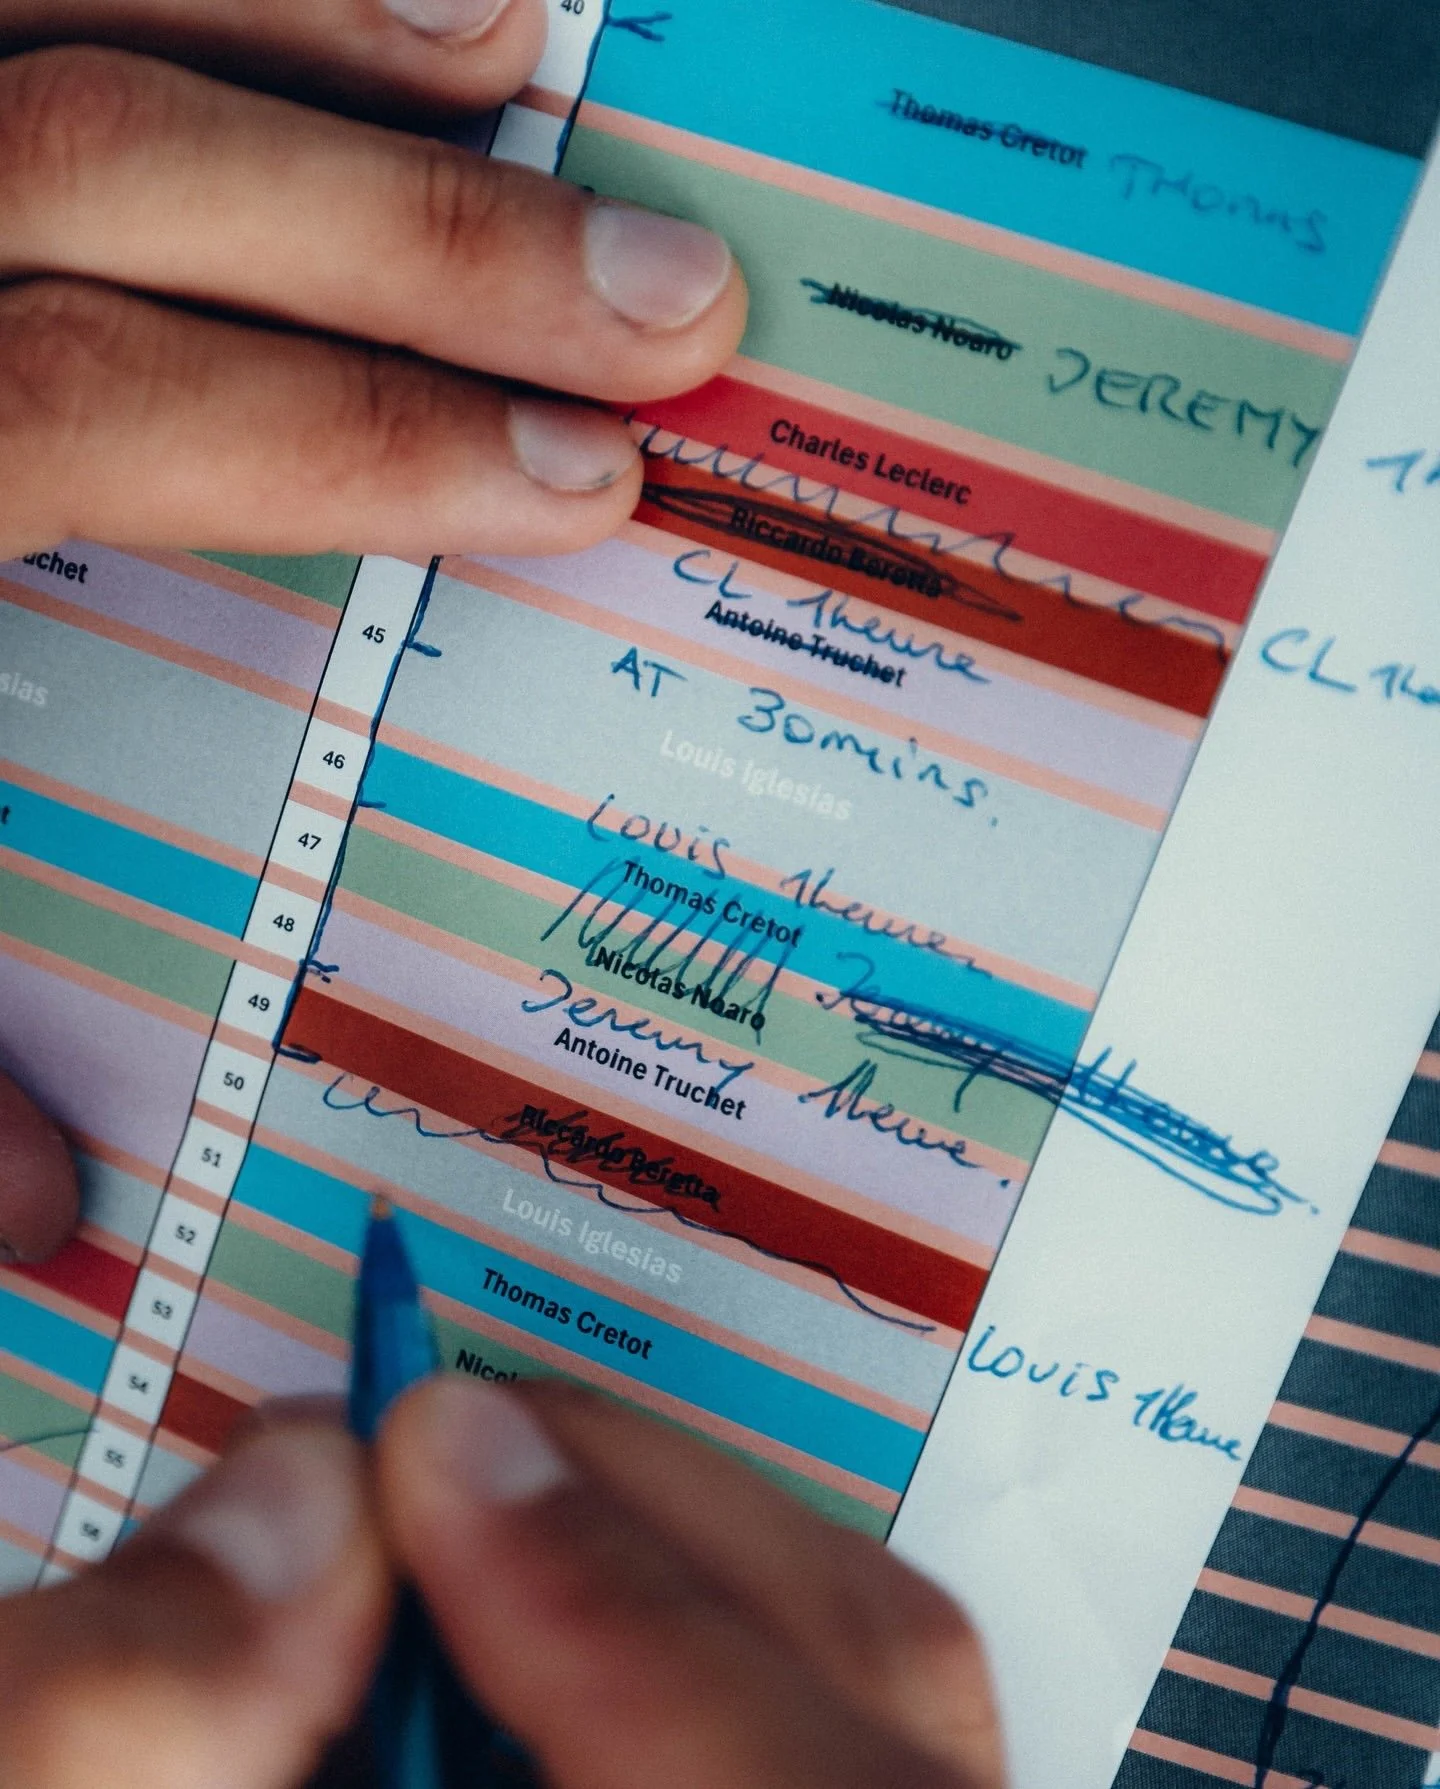 40
Thomas Cretot THOMAS
Nicolas Noaro JEREMY
Charles Leclerc
Riccardo Beretta
CL 1heure
CL 1he
Antoine Truchet
AT 30mins.
Louis Iglesias
Louis 1heure
Thomas Cretot
Jeremy 1heure.
Nicolas Noaro
Jeremy 1heure.
Antoine Truchet
Riccardo Beretta
Louis Iglesias
Louis 1Heure
Thomas Cretot
Nicol
uchet
45
sias
46
47
t
48
49
50
51
52
53
54
55
56